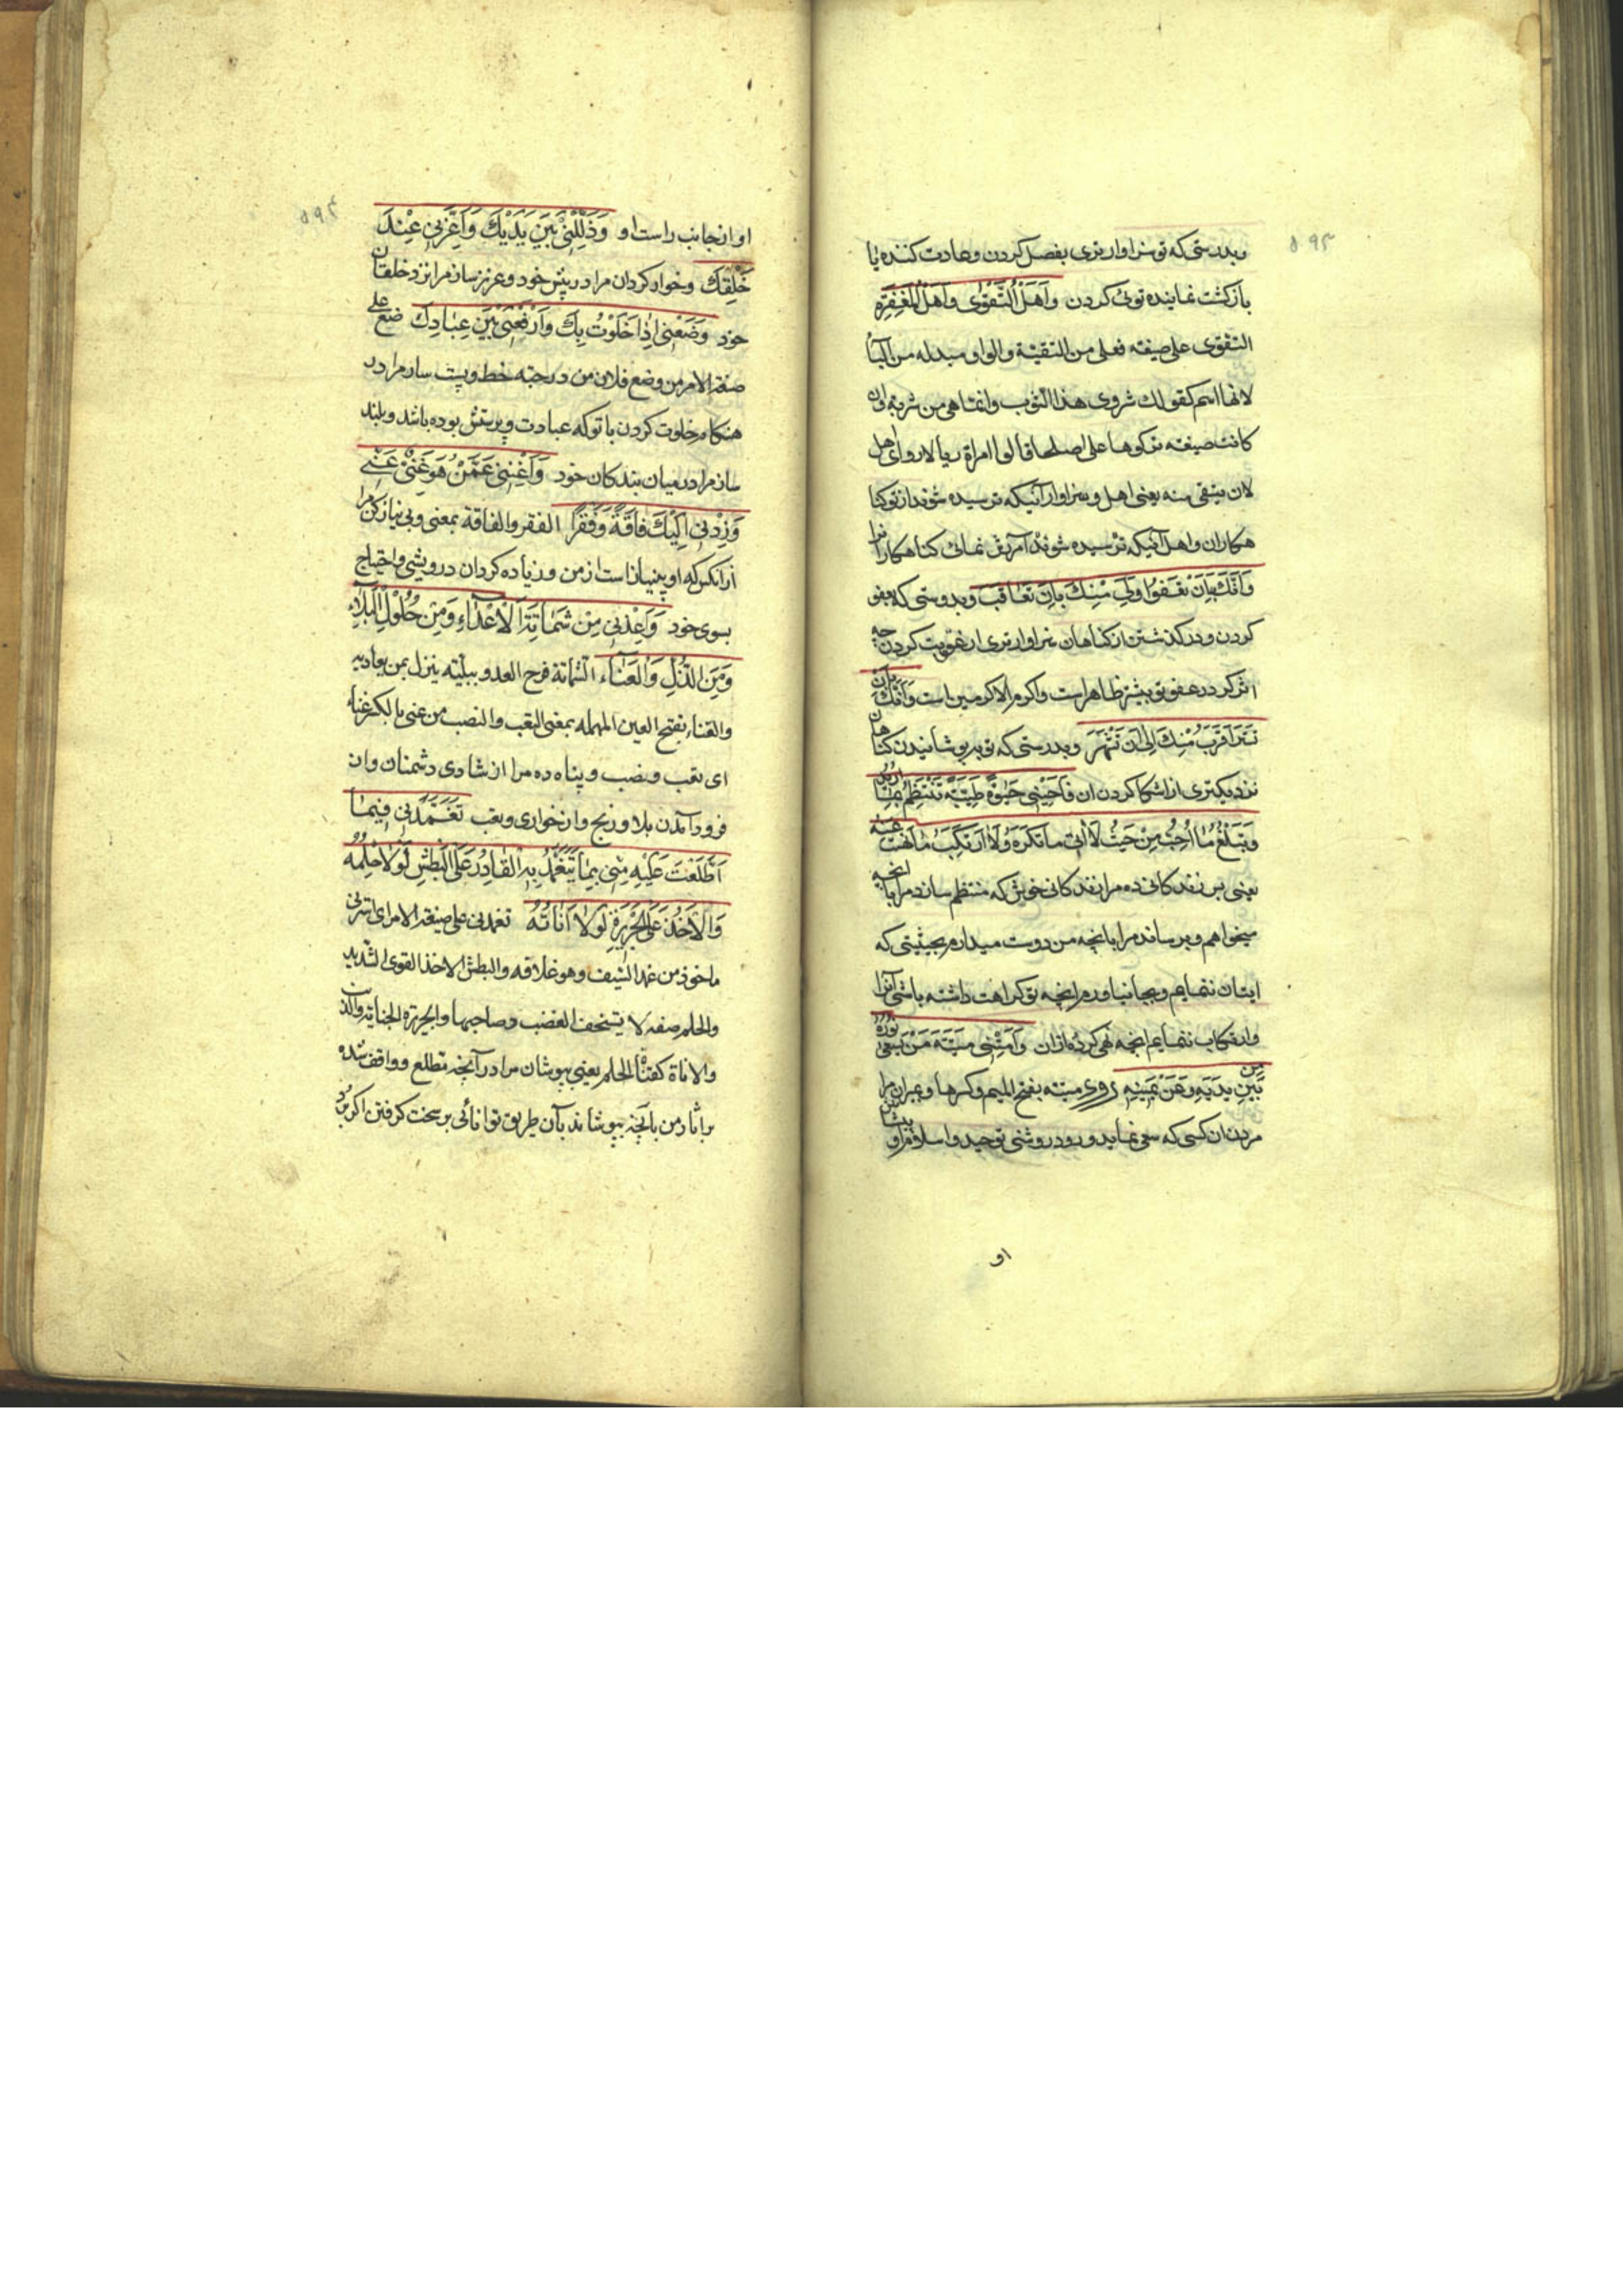 ۵۹۳
وبدرستی که تو سزاوارتری بفضل کردن وعادت کننده یا
بازکشت نماینده توئی کردن وَاَهْلُ التَّقْوٰی وَاَهْلُ الْمَغْفِرَةِ
التقوی علی صیغه فعلی من التقیة والواو مبدله من الیاء
لانها اسم کقولك شروی هذا الثوب وانما هی من شریت وان
کانت صیغته ترکوها علی اصلها قالوا امراة ریا لا روا ای اهل
لان یتقی منه یعنی اهل وسزاوار آنیکه ترسیده شوند از تو کنا
هکاران واهل آنیکه ترسیده شوند آمرزش نمائی کناهکارانرا
وَاَنَّكَ بِاَنْ تَعْفُوَ اَوْلٰی مِنْكَ بِاَنْ تُعَاقِبَ وبدرستی که بعفو
کردن ودر کذشتن از کناهان سزاوارتری از عقوبت کردن چه
اثر کرد در عفو تو بیشتر ظاهر است واکرم الاکرمین است وَاَنَّكَ بِاَنْ
تَسْتُرَ اَقْرَبُ مِنْكَ اِلٰی اَنْ تَشْهَرَ وبدرستی که تو بر پوشانیدن کناهان
نزدیکتری از اشکارا کردن ان فَاَحْیِنِی حَیٰوةً طَیِّبَةً تَنْتَظِمُ بِمَا اُرِیدُ
وَتَبْلُغُ مَا اُحِبُّ مِنْ حَیْثُ لَا اٰتِی مَا تَکْرَهُ وَلَا اَرْتَکِبُ مَا نَهَیْتَ عَنْهُ
یعنی پس زندکانی ده مرا زندکانی خوش که منتظم سازد مرا با انچه
میخواهم وبرساند مرا بانچه من دوست میدارم بحیثیتی که
اتیان ننمایم وبجا نیاورم انچه تو کراهت داشته باشی آنرا
وارتکاب ننمایم انچه نهی کرده از ان وَاَمِتْنِی مِیتَةَ مَنْ یَسْعٰی نُورُهُ
بَیْنَ یَدَیْهِ وَعَنْ یَمِینِهِ روی میته بفتح المیم وکسرها وبمیران مرا
مردن ان کسی که سعی نماید ورود روشنی توحید واسلام او پیشاپیش
او
۵۹۴
او از جانب راست او وَذَلِّلْنِی بَیْنَ یَدَیْكَ وَاَعِزَّنِی عِنْدَ
خَلْقِكَ وخوار کردان مرا در پیش خود وعزیز ساز مرا نزد خلقان
خود وَضَعْنِی اِذَا خَلَوْتُ بِكَ وَارْفَعْنِی بَیْنَ عِبَادِكَ ضع علی
صیغة الامر من وضع فلان من درجته خط وپست ساز مرا در
هنکام خلوت کردن با تو که عبادت وپرستش بوده باشد وبلند
ساز مرا در میان بندکان خود وَاَغْنِنِی عَمَّنْ هُوَ غَنِیٌّ عَنِّی
وَزِدْنِی اِلَیْكَ فَاقَةً وَفَقْرًا الفقر والفاقة بمعنی وبی نیاز کن مرا
از انکس که او بینیاز است از من وزیاده کردان درویشی واحتیاج
بسوی خود وَاَعِذْنِی مِنْ شَمَاتَةِ الْاَعْدَاءِ وَمِنْ حُلُولِ الْبَلَاءِ
وَمِنَ الذُّلِّ وَالْعَنَاءِ الشماتة فرح العدو ببلیته ینزل بمن یعادیه
والعناء بفتح العین المهمله بمعنی التعب والنصب من عنی بالکسر عناء
ای تعب ونصب وپناه ده مرا از شادی دشمنان وان
فرود آمدن بلا ورنج واز خواری وتعب تَغَمَّدْنِی فِیمَا
اَطْلَعْتَ عَلَیْهِ مِنِّی بِمَا یَتَغَمَّدُ بِهِ الْقَادِرُ عَلَی الْبَطْشِ لَوْلَا حِلْمُهُ
وَالْاٰخِذُ عَلَی الْجَرِیرَةِ لَوْلَا اَنَاتُهُ تغمدنی علی صیغة الامر ای استرنی
ماخوذ من غمد السیف وهو غلافه والبطش الاخذ القوی الشدید
والحلم صفه لا یستخف الغضب وصاحبها والجریره الجنایة والذنب
والاناة کقناة الحلم یعنی بپوشان مرا در آنچه مطلع وواقف شده
بر اثار من بانچه بپوشاند بآن طریق توانائی بر سخت کرفتن اکر نبود